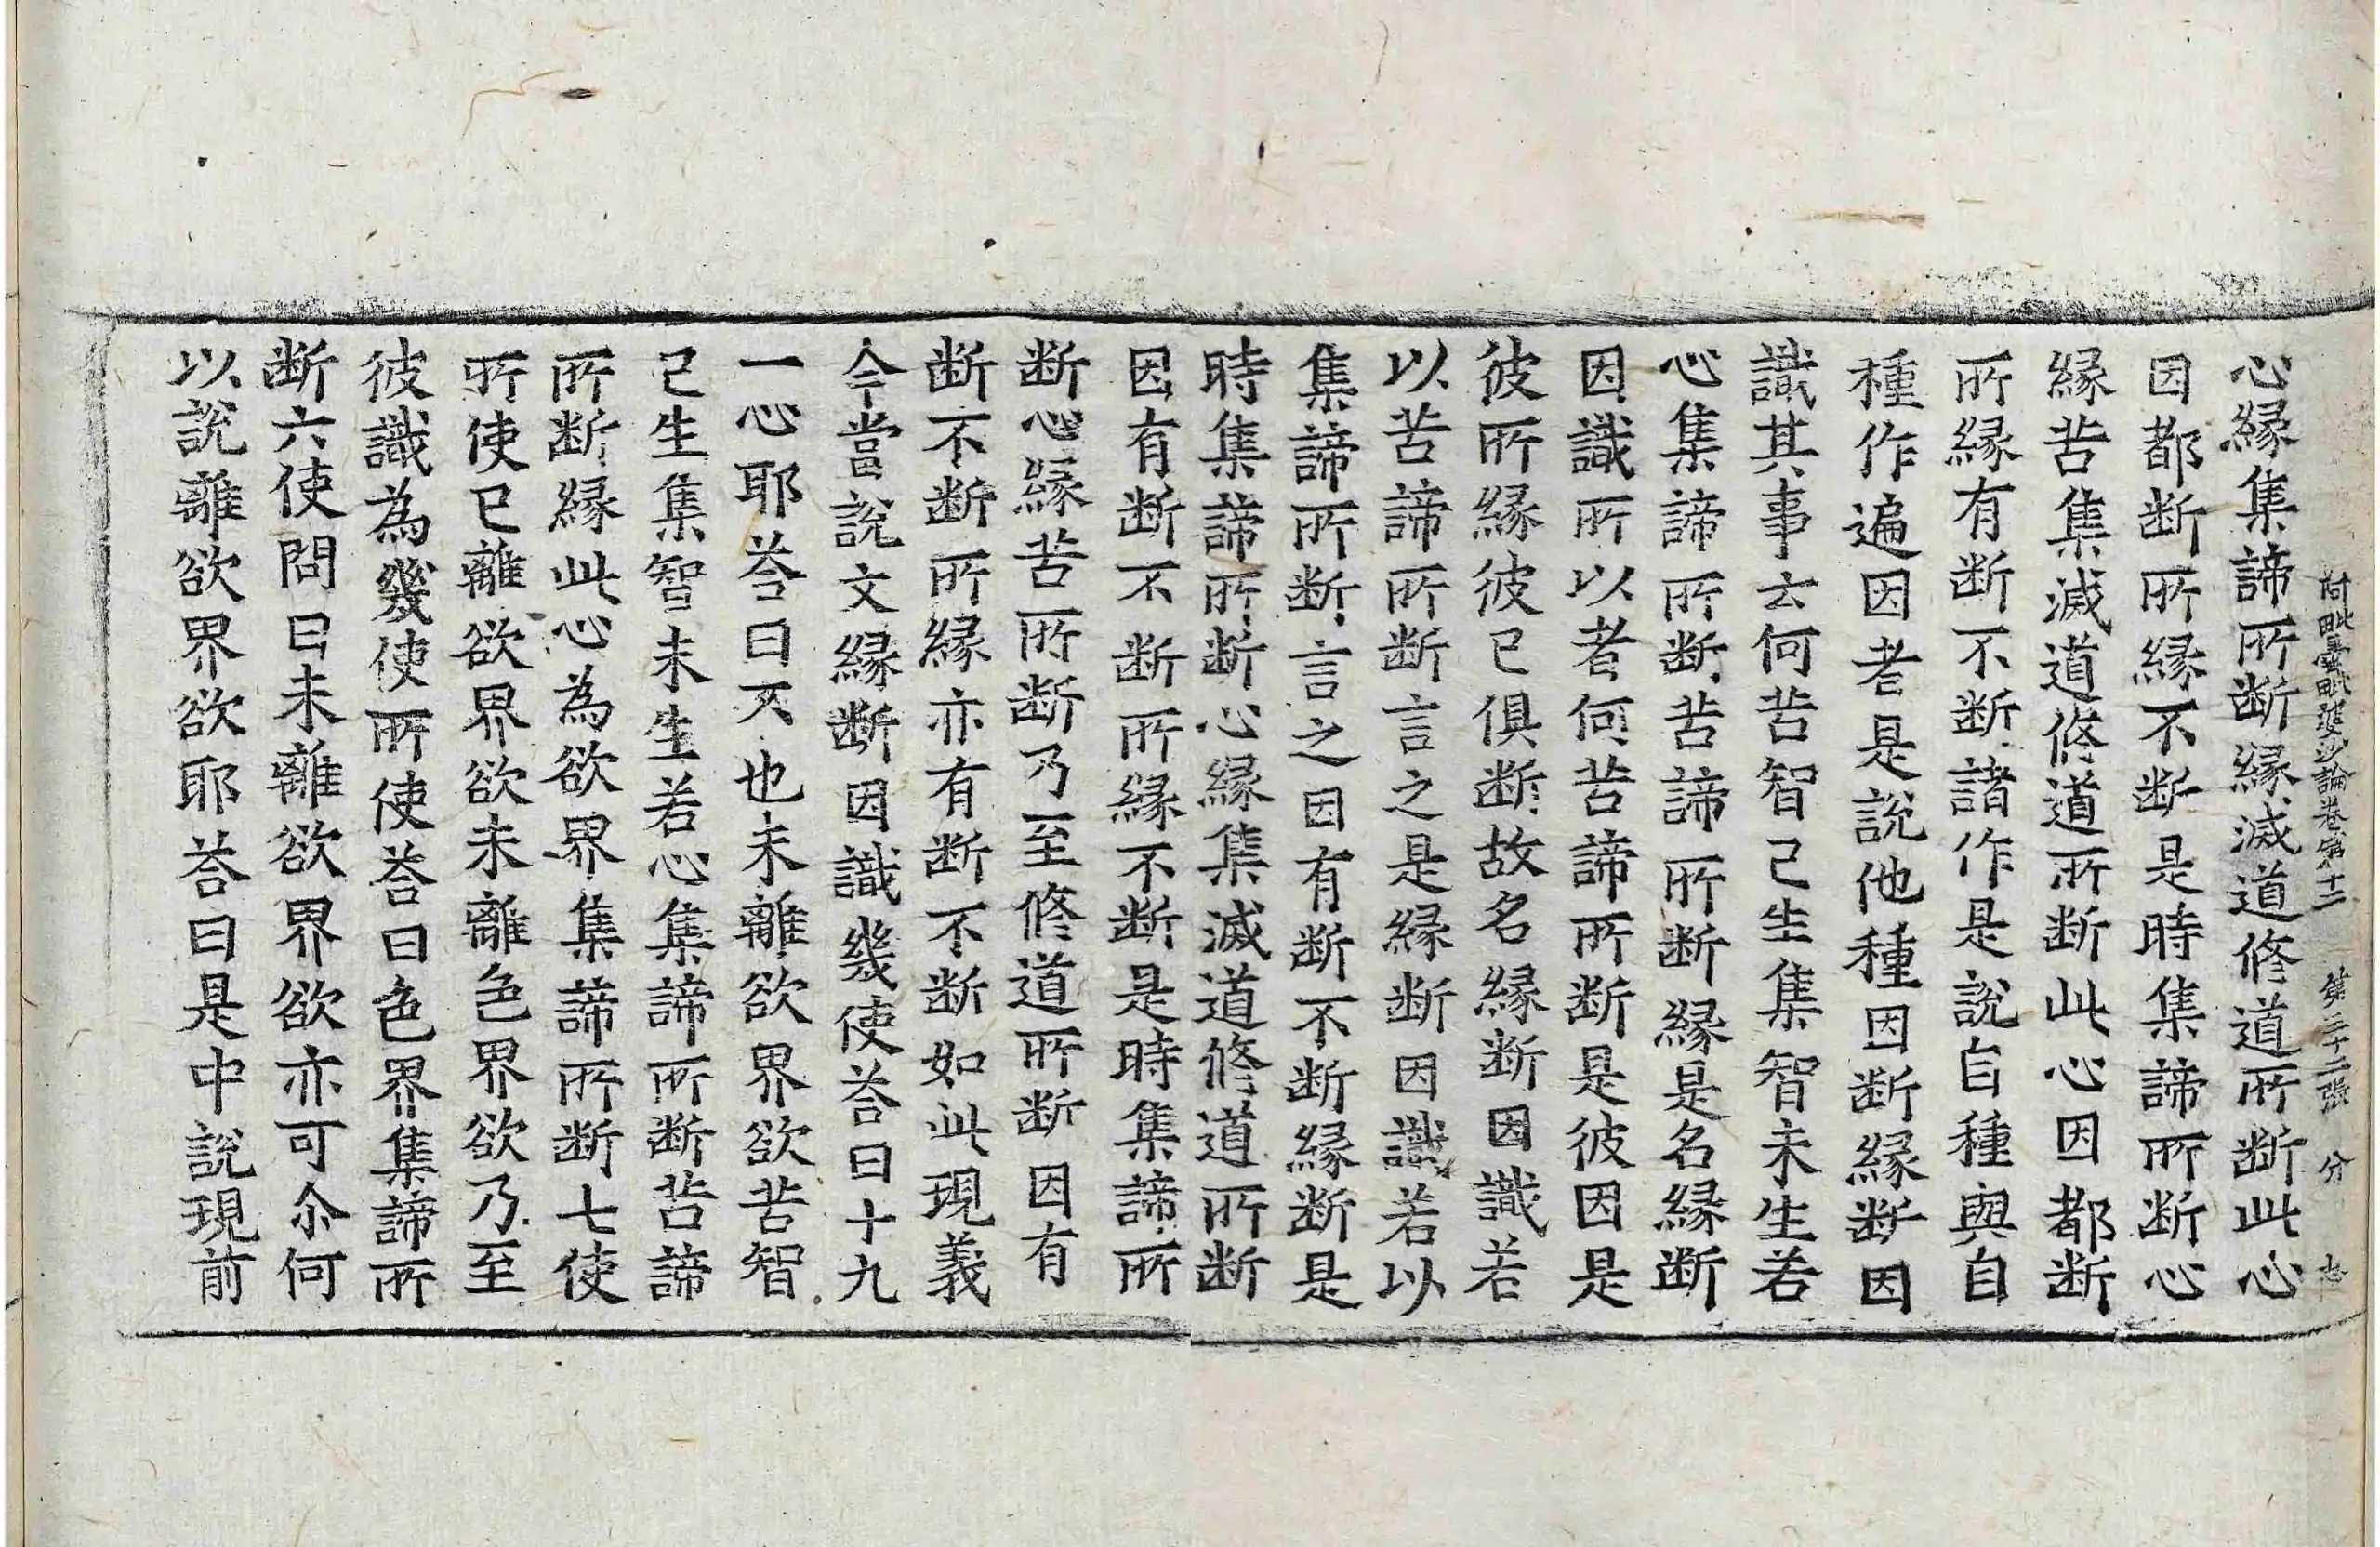 阿毗曇毗婆沙論卷第十二 第二十二張 分 志
心縁集諦所断縁滅道修道所断此心
因都断所縁不断是時集諦所断心
縁苦集滅道修道所断此心因都断
所縁有断不断諸作是說自種與自
種作遍因者是說他種因断縁断因
識其事云何苦智已生集智未生若
心集諦所断苦諦所断縁是名縁断
因識所以者何苦諦所断是彼因是
彼所縁彼已俱断故名縁断因識若
以苦諦所断言之是縁断因識若以
集諦所断言之因有断不断縁断是
時集諦所断心縁集滅道修道所断
因有断不断所縁不断是時集諦所
断心縁苦所断乃至修道所断因有
断不断所縁亦有断不断如此現義
今當說文縁断因識幾使荅曰十九
一心耶荅曰不也未離欲界欲苦智
已生集智未生若心集諦所断苦諦
所断縁此心為欲界集諦所断七使
所使已離欲界欲未離色界欲乃至
彼識為幾使所使荅曰色界集諦所
断六使問曰未離欲界欲亦可尒何
以說離欲界欲耶荅曰是中說現前